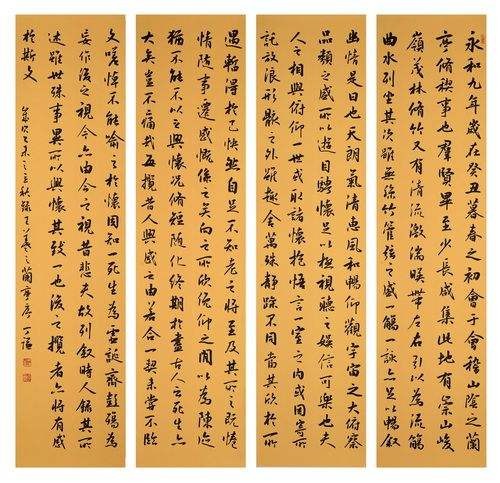 永和九年歲在癸丑暮春之初會于會稽山陰之蘭
亭脩禊事也羣賢畢至少長咸集此地有崇山峻
嶺茂林脩竹又有清流激湍暎帶左右引以為流觴
曲水列坐其次雖無絲竹管弦之盛一觴一詠亦足以暢叙
幽情是日也天朗氣清惠風和暢仰觀宇宙之大俯察
品類之盛所以遊目騁懷足以極視聽之娛信可樂也夫
人之相與俯仰一世或取諸懷抱悟言一室之內或因寄所
託放浪形骸之外雖趣舍萬殊靜躁不同當其欣於所
遇暫得於己快然自足不知老之將至及其所之既惓
情隨事遷感慨係之矣向之所欣俛仰之間以為陳迹
猶不能不以之興懷況脩短隨化終期於盡古人云死生亦
大矣豈不痛哉每攬昔人興感之由若合一契未嘗不臨
文嗟悼不能喻之於懷固知一死生為虛誕齊彭殤為
妄作後之視今亦由今之視昔悲夫故列叙時人錄其所
述雖世殊事異所以興懷其致一也後之攬者亦將有感
於斯文
歲次乙未之立秋錄王羲之蘭亭序